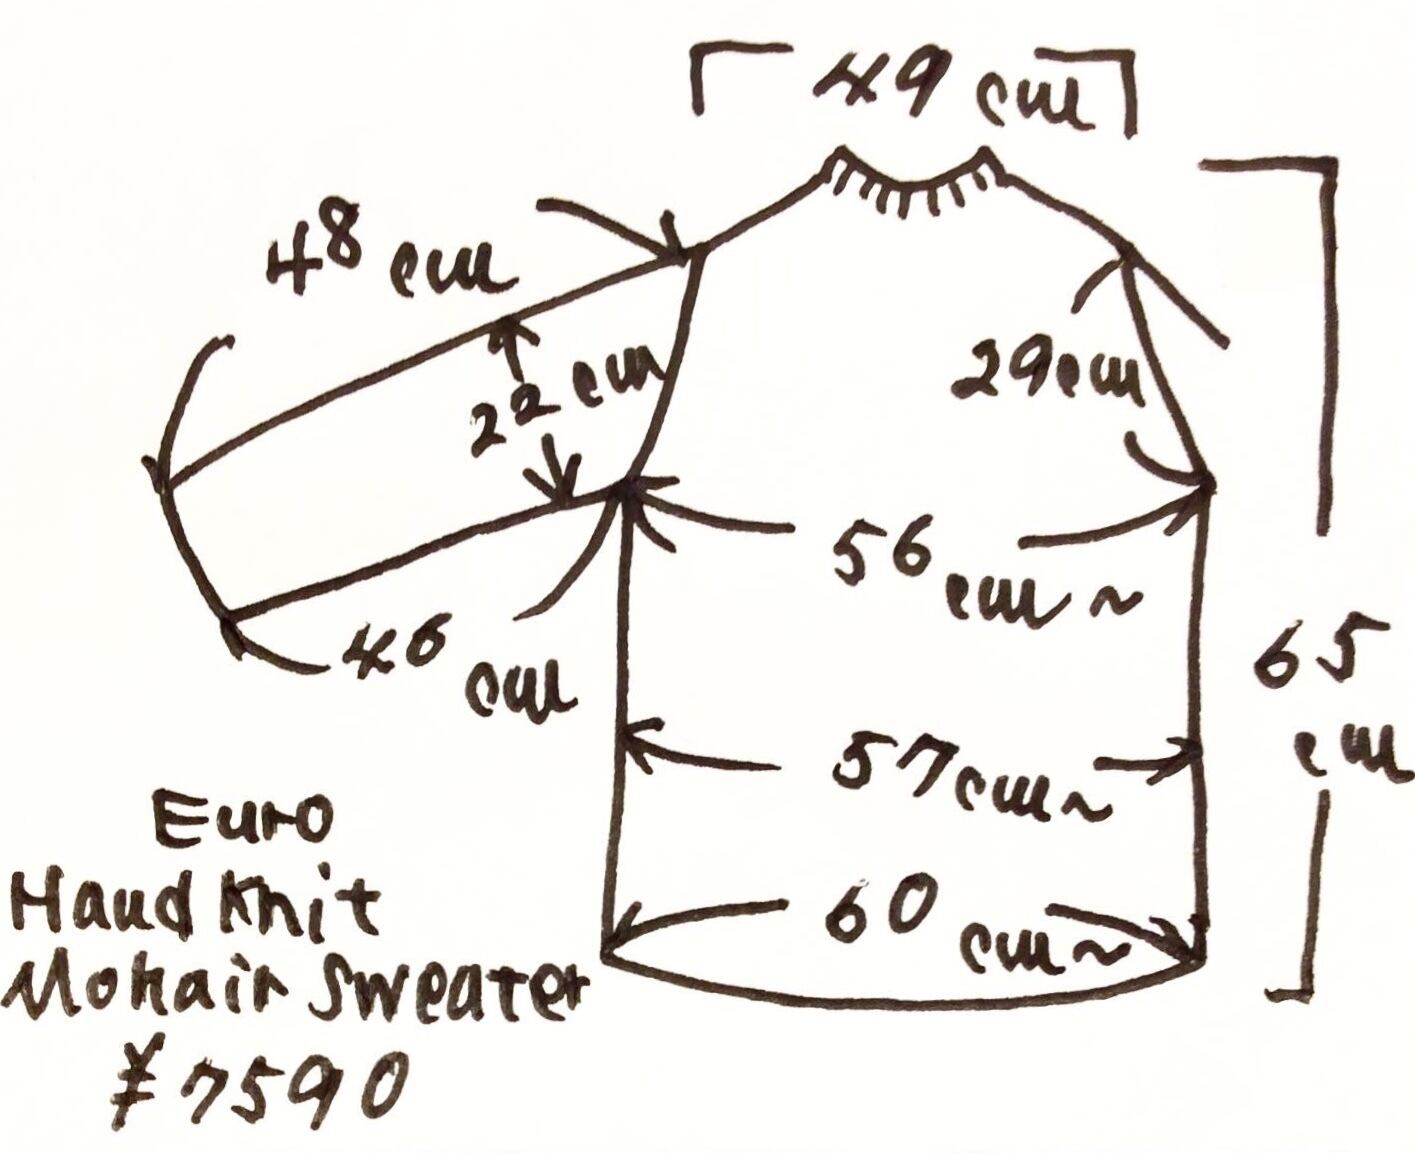 49 cm
48 cm
22 cm
29cm
56 cm~
46 cm
65 cm
57cm~
60 cm~
Euro
Hand Knit
Mohair Sweater
¥7590